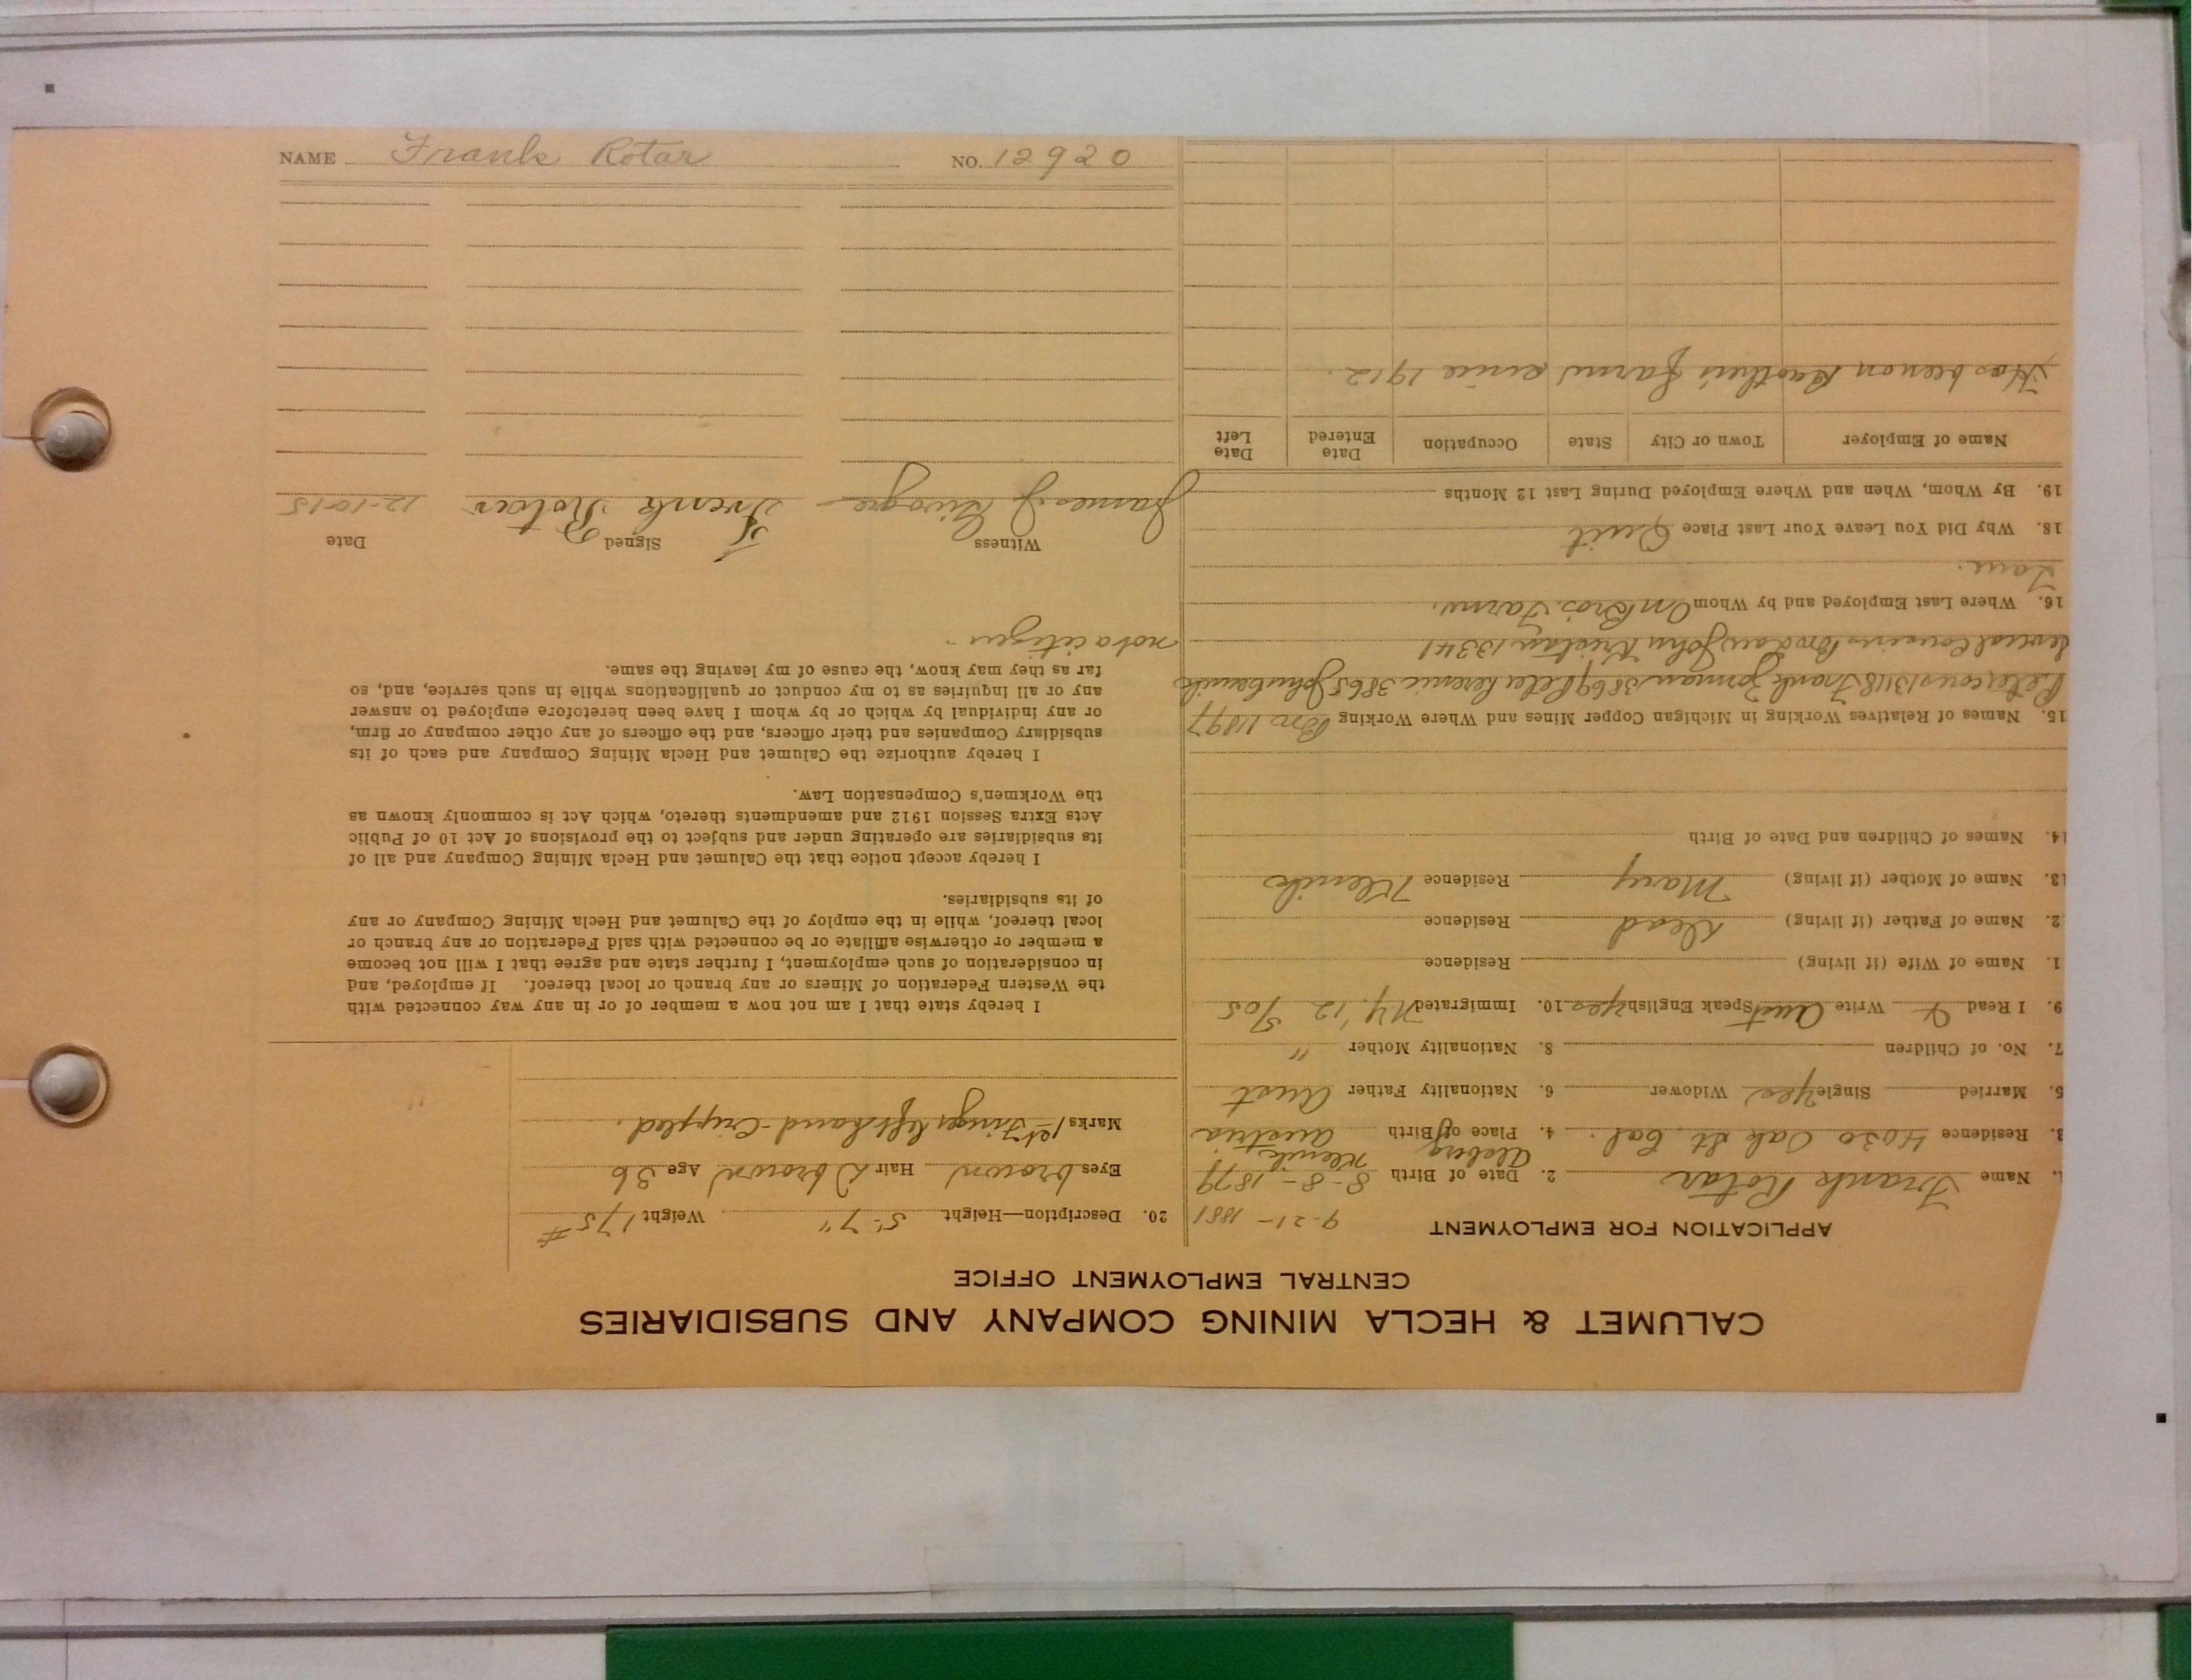 CALUMET & HECLA MINING COMPANY AND SUBSIDIARIES
CENTRAL EMPLOYMENT OFFICE
APPLICATION FOR EMPLOYMENT
9-21-1881
1. Name Frank Rotar 2. Date of Birth 8-8-1879
3. Residence 4030 Oak St. Cal. 4. Place of Birth Austria
5. Married Single yes Widower 6. Nationality Father Aust
7. No. of Children 8. Nationality Mother "
9. I Read Write Aust Speak English yes 10. Immigrated N.Y. '12 '05
1. Name of Wife (if living) Residence
2. Name of Father (if living) Dead Residence
13. Name of Mother (if living) Mary Residence Klenik
14. Names of Children and Date of Birth
15. Names of Relatives Working in Michigan Copper Mines and Where Working Bro 11897
Peter cous 13118 Frank 3869 Peter 3865 John
several Cousins Bro law John 13341
16. Where Last Employed and by Whom On Bros. Farm.
18. Why Did You Leave Your Last Place Quit
19. By Whom, When and Where Employed During Last 12 Months
Name of Employer Town or City State Occupation Date Entered Date Left
Has been on Brothers farm since 1912.
20. Description—Height 5'-7" Weight 175#
Eyes brown Hair D brown Age 36
Marks 1st Finger left hand-Crippled.
I hereby state that I am not now a member of or in any way connected with
the Western Federation of Miners or any branch or local thereof. If employed, and
in consideration of such employment, I further state and agree that I will not become
a member or otherwise affiliate or be connected with said Federation or any branch or
local thereof, while in the employ of the Calumet and Hecla Mining Company or any
of its subsidiaries.
I hereby accept notice that the Calumet and Hecla Mining Company and all of
its subsidiaries are operating under and subject to the provisions of Act 10 of Public
Acts Extra Session 1912 and amendments thereto, which Act is commonly known as
the Workmen's Compensation Law.
I hereby authorize the Calumet and Hecla Mining Company and each of its
subsidiary Companies and their officers, and the officers of any other company or firm,
or any individual by which or by whom I have been heretofore employed to answer
any or all inquiries as to my conduct or qualifications while in such service, and, so
far as they may know, the cause of my leaving the same.
not a citizen -
Witness Signed Date
James J Frenk Rotar 12-10-15
NAME Frank Rotar NO. 12920